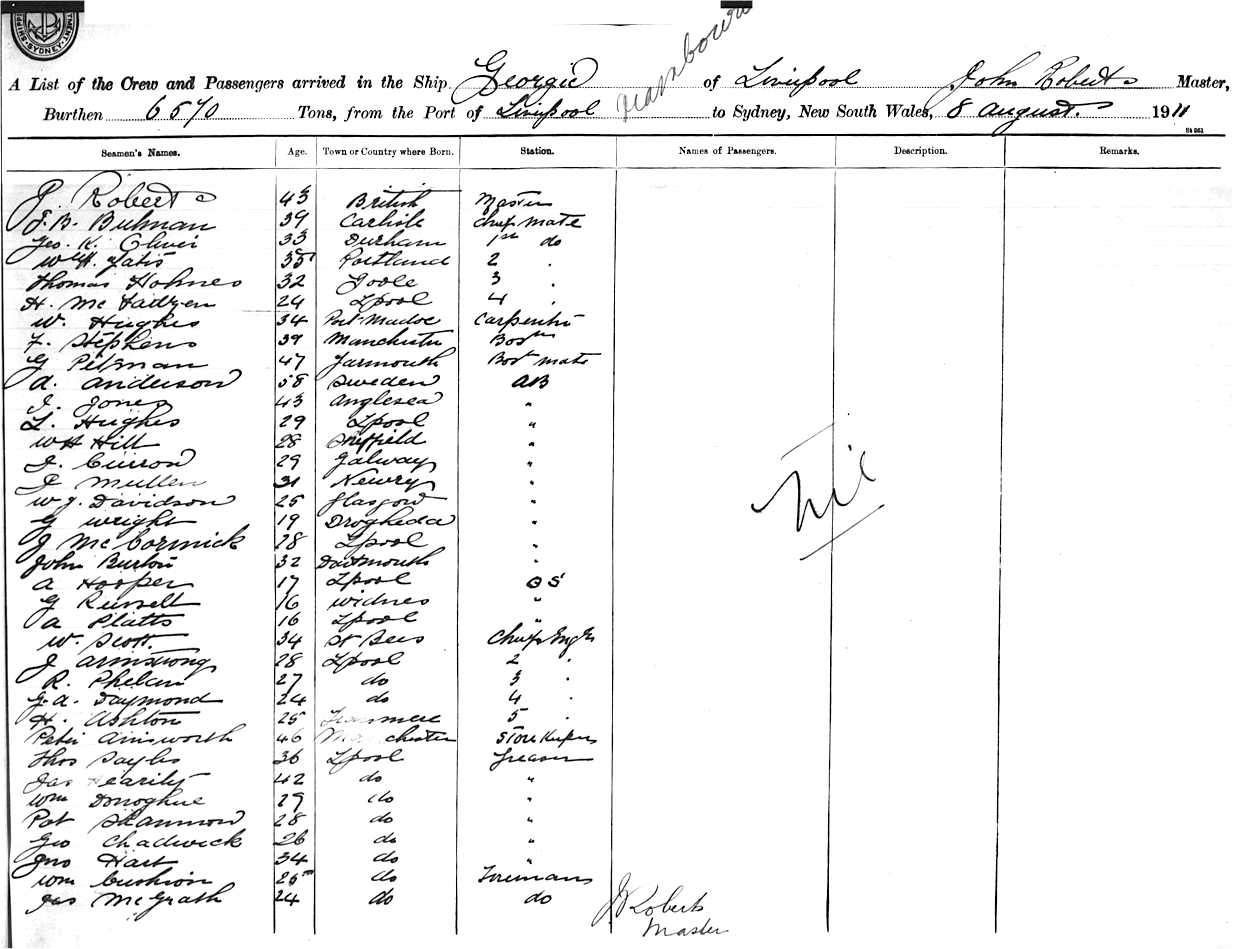 SYDNEY
A List of the Crew and Passengers arrived in the Ship Georgic of Liverpool John Roberts Master,
Burthen 6570 Tons, from the Port of Liverpool to Sydney, New South Wales, 8 August. 1911
Seamen's Names. Age. Town or Country where Born. Station. Names of Passengers. Description. Remarks.
J. Roberts 43 British Master
J. B. Bulman 39 Carlisle Chief Mate
Geo. K. Oliver 33 Durham 1st do
Wm H. Yates 35 Portland 2 "
Thomas Holmes 32 Goole 3 "
H. McFadyen 24 Lpool 4 "
W. Hughes 34 Port Madoc Carpenter
F. Stephens 39 Manchester Bosn
G Pitman 47 Yarmouth Bosn mate
A. Anderson 58 Sweden AB
J. Jones 43 Anglesea "
L. Hughes 29 Lpool "
W H Hill 28 Sheffield "
J. 29 Galway "
J Mullen 31 Newry "
W J. Davidson 25 Glasgow "
G Wright 19 Drogheda "
J McCormick 28 Lpool "
John Burton 32 Dartmouth "
A Hooper 17 Lpool OS
G Russell 16 Widnes "
A Platts 16 Lpool "
W. Scott. 34 St Bees Chief Engr
J Armstrong 28 Lpool 2 "
R. Phelan 27 do 3 "
G. A. Daymond 24 do 4 "
H. Ashton 25 Tranmere 5 "
Peter Ainsworth 46 Manchester Store Keeper
Thos Sayles 36 Lpool Greaser
Jas 42 do "
Wm Donoghue 29 do "
Pat Shannon 28 do "
Geo Chadwick 26 do "
Jno Hart 34 do "
Wm Cushion 25 do Firemans
Jas McGrath 24 do do
Nil
J Roberts
Master